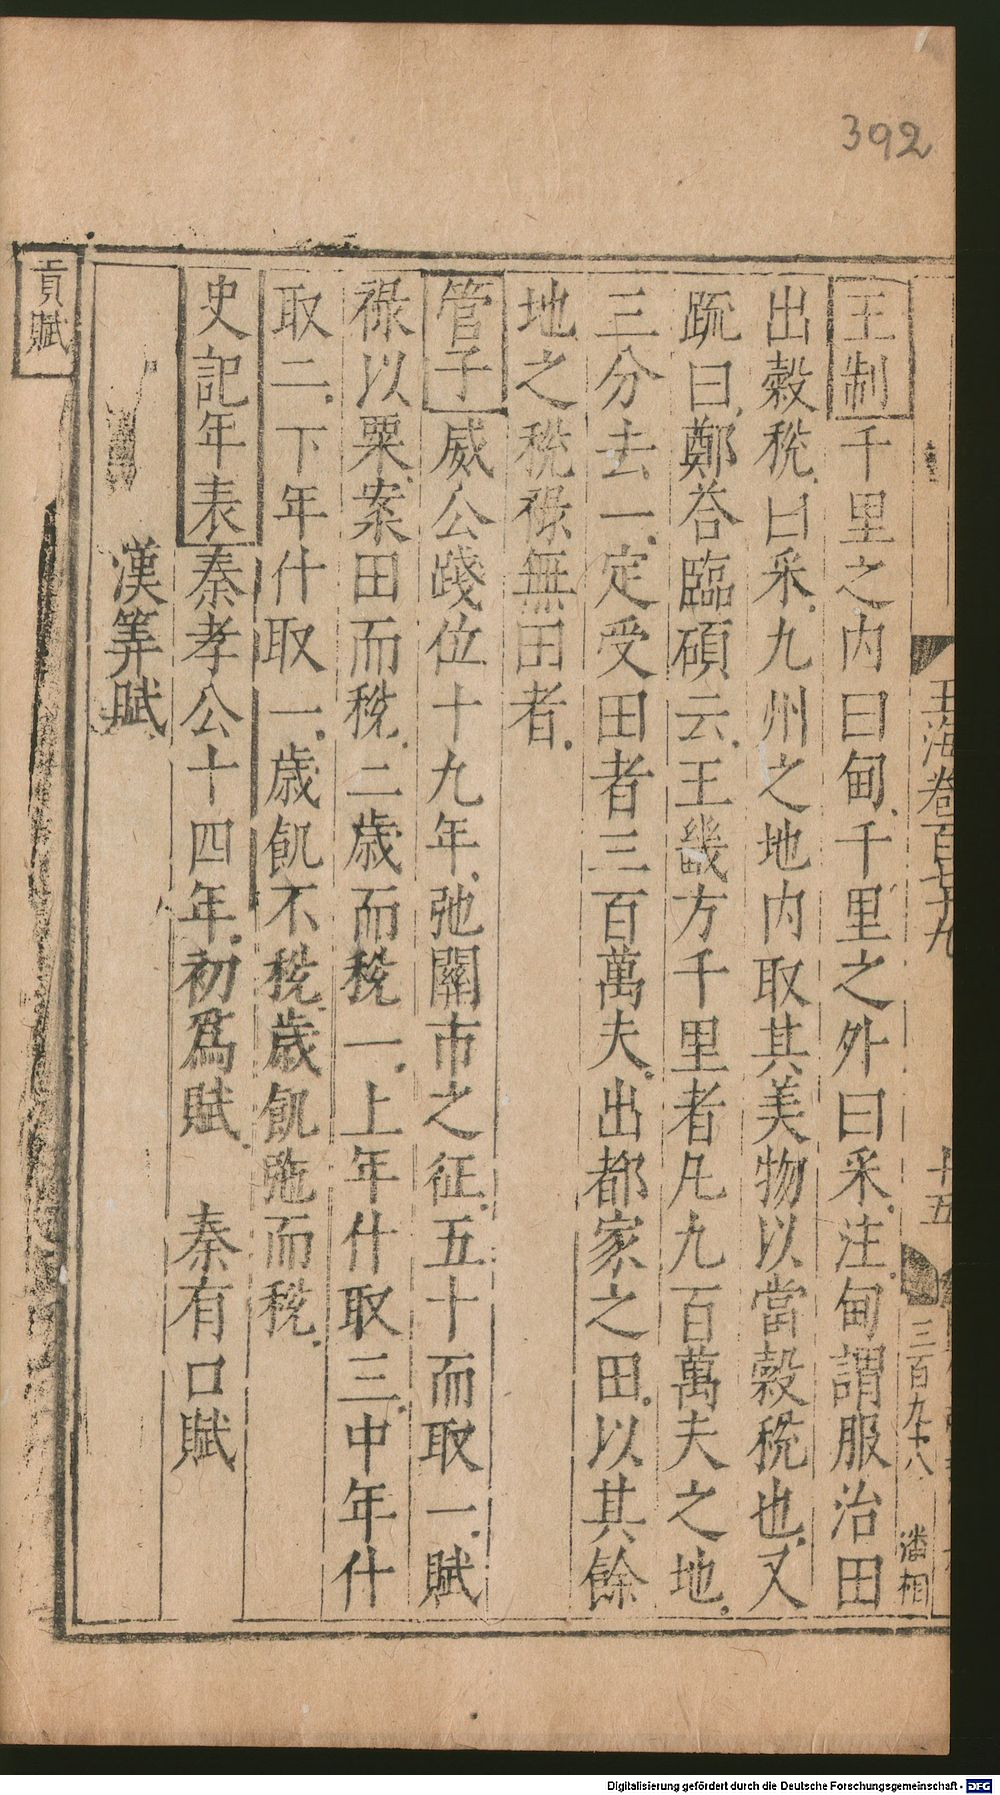 392
玉海卷百七十九
十五
三百九十八
潘相
王制千里之内曰甸千里之外曰采注甸謂服治田
出穀稅曰采九州之地内取其美物以當穀稅也又
䟽曰鄭荅臨碩云王畿方千里者凡九百萬夫之地
三分去一定受田者三百萬夫出都家之田以其餘
地之稅祿無田者
管子威公踐位十九年弛關市之征五十而取一賦
祿以粟案田而稅二歲而稅一上年什取三中年什
取二下年什取一歲飢不稅歲飢㢮而稅
史記年表秦孝公十四年初爲賦 秦有口賦
漢筭賦
貢賦
Digitalisierung gefördert durch die Deutsche Forschungsgemeinschaft - DFG